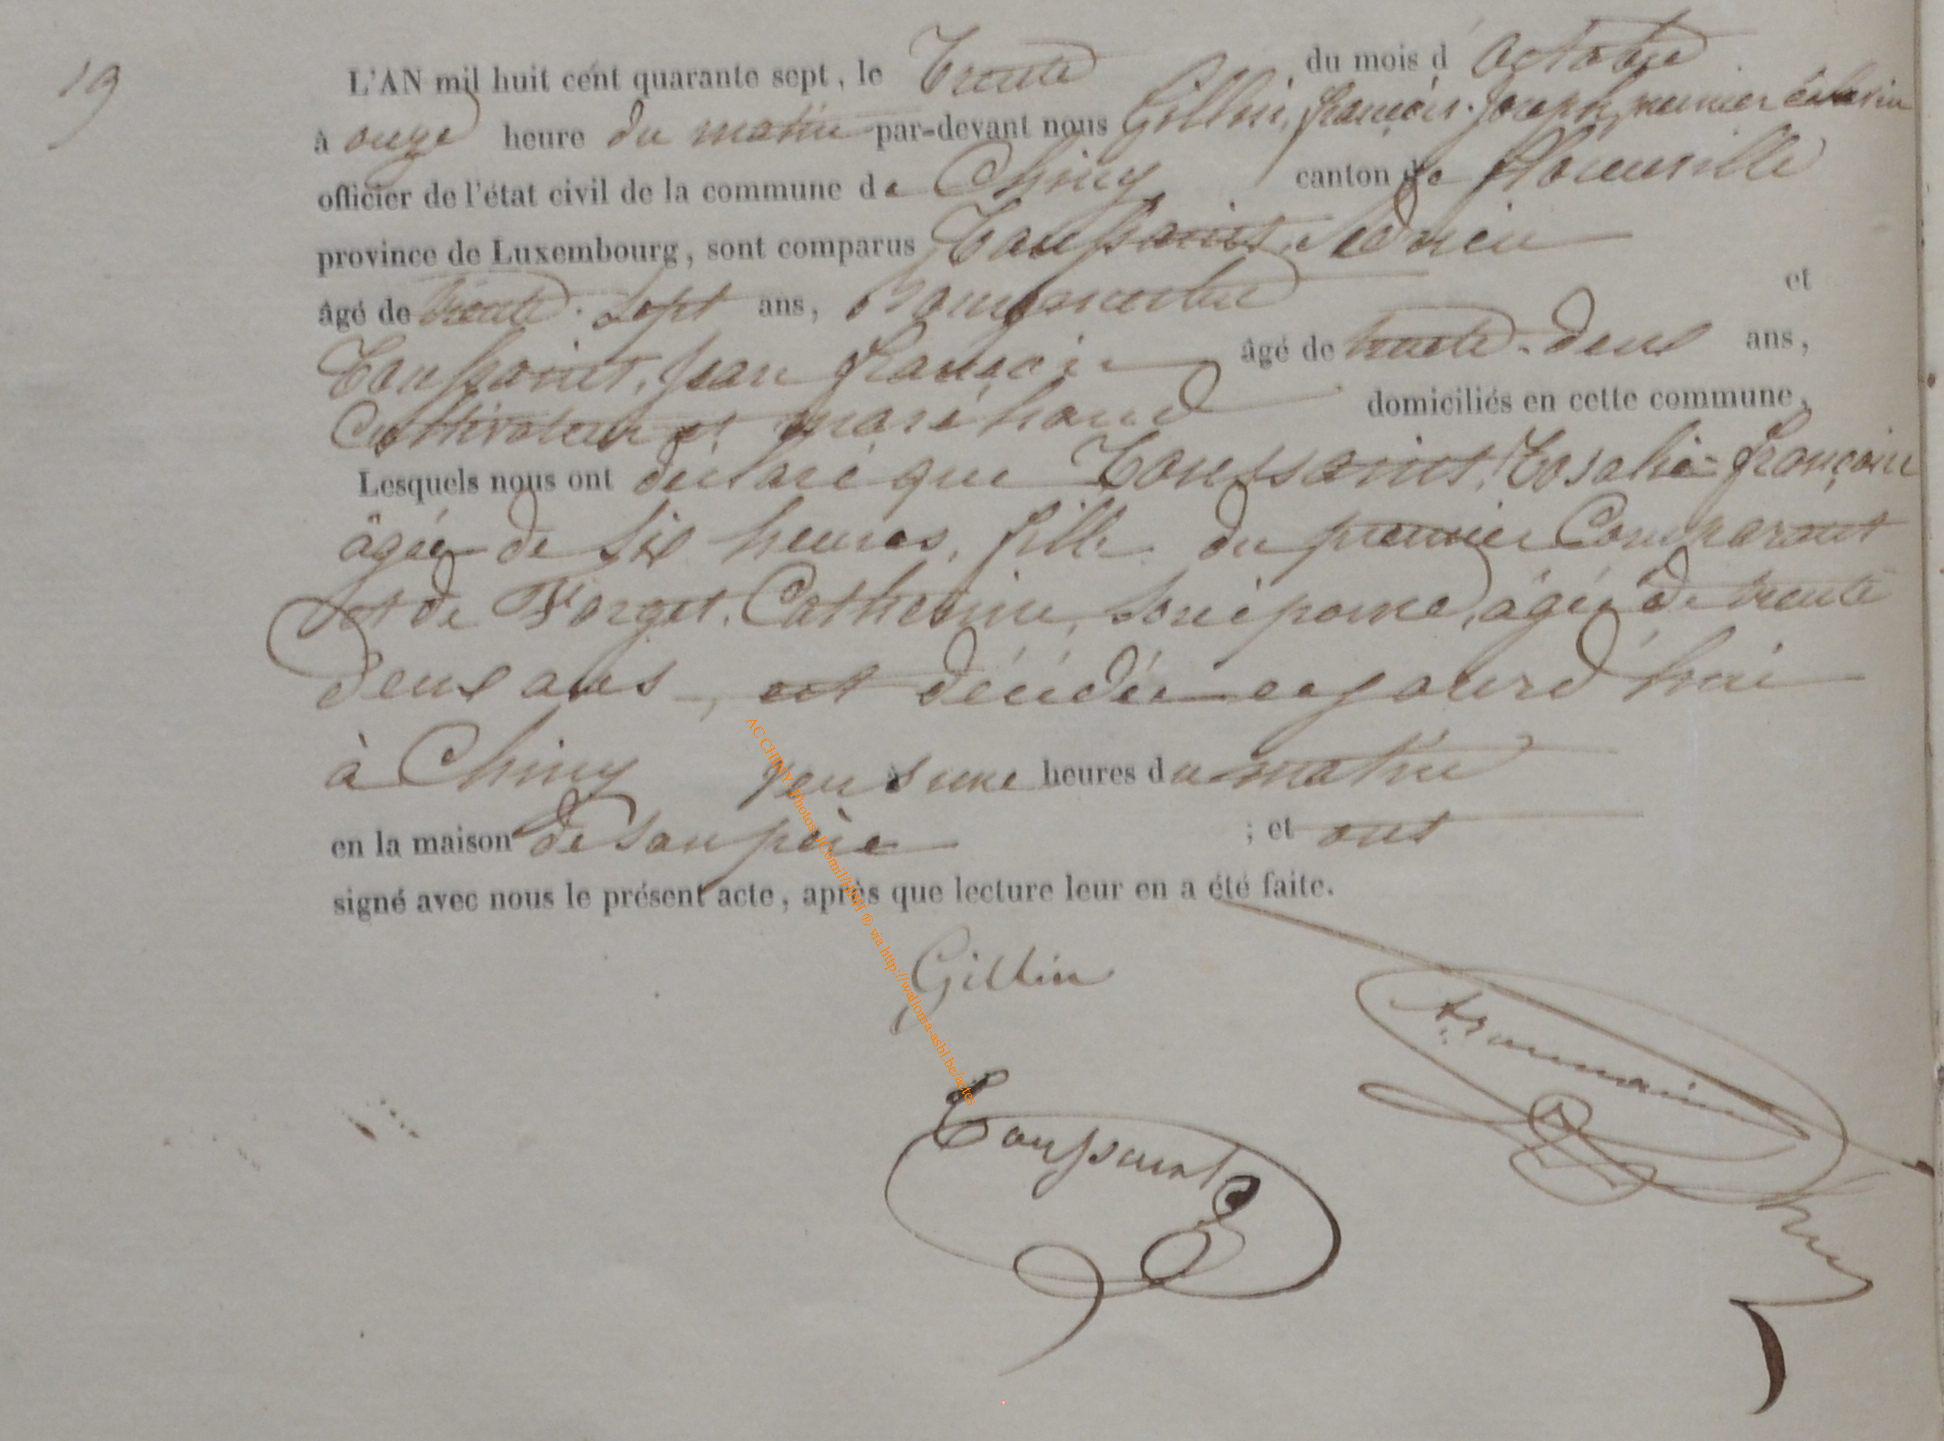 19
L'AN mil huit cent quarante sept, le Trente du mois d'Octobre
à onze heure du matin par-devant nous Gillin, françois-Joseph, premier échevin
officier de l'état civil de la commune de Chiny canton de florenville
province de Luxembourg, sont comparus Toussaint, Adrien
âgé de trente-sept ans, et
Toussaint, Jean françois âgé de trente-deux ans,
Cultivateur et maréhand domiciliés en cette commune,
Lesquels nous ont déclaré que Toussaint, Rosalie-françoise
âgée de six heures, fille du premier Comparant
et de Forget, Catherine, son épouse, âgée de trente
deux ans, est décédée aujourd'hui
à Chiny vers une heures du matin
en la maison de son père ; et ont
signé avec nous le présent acte, après que lecture leur en a été faite.
Gillin
Toussaint